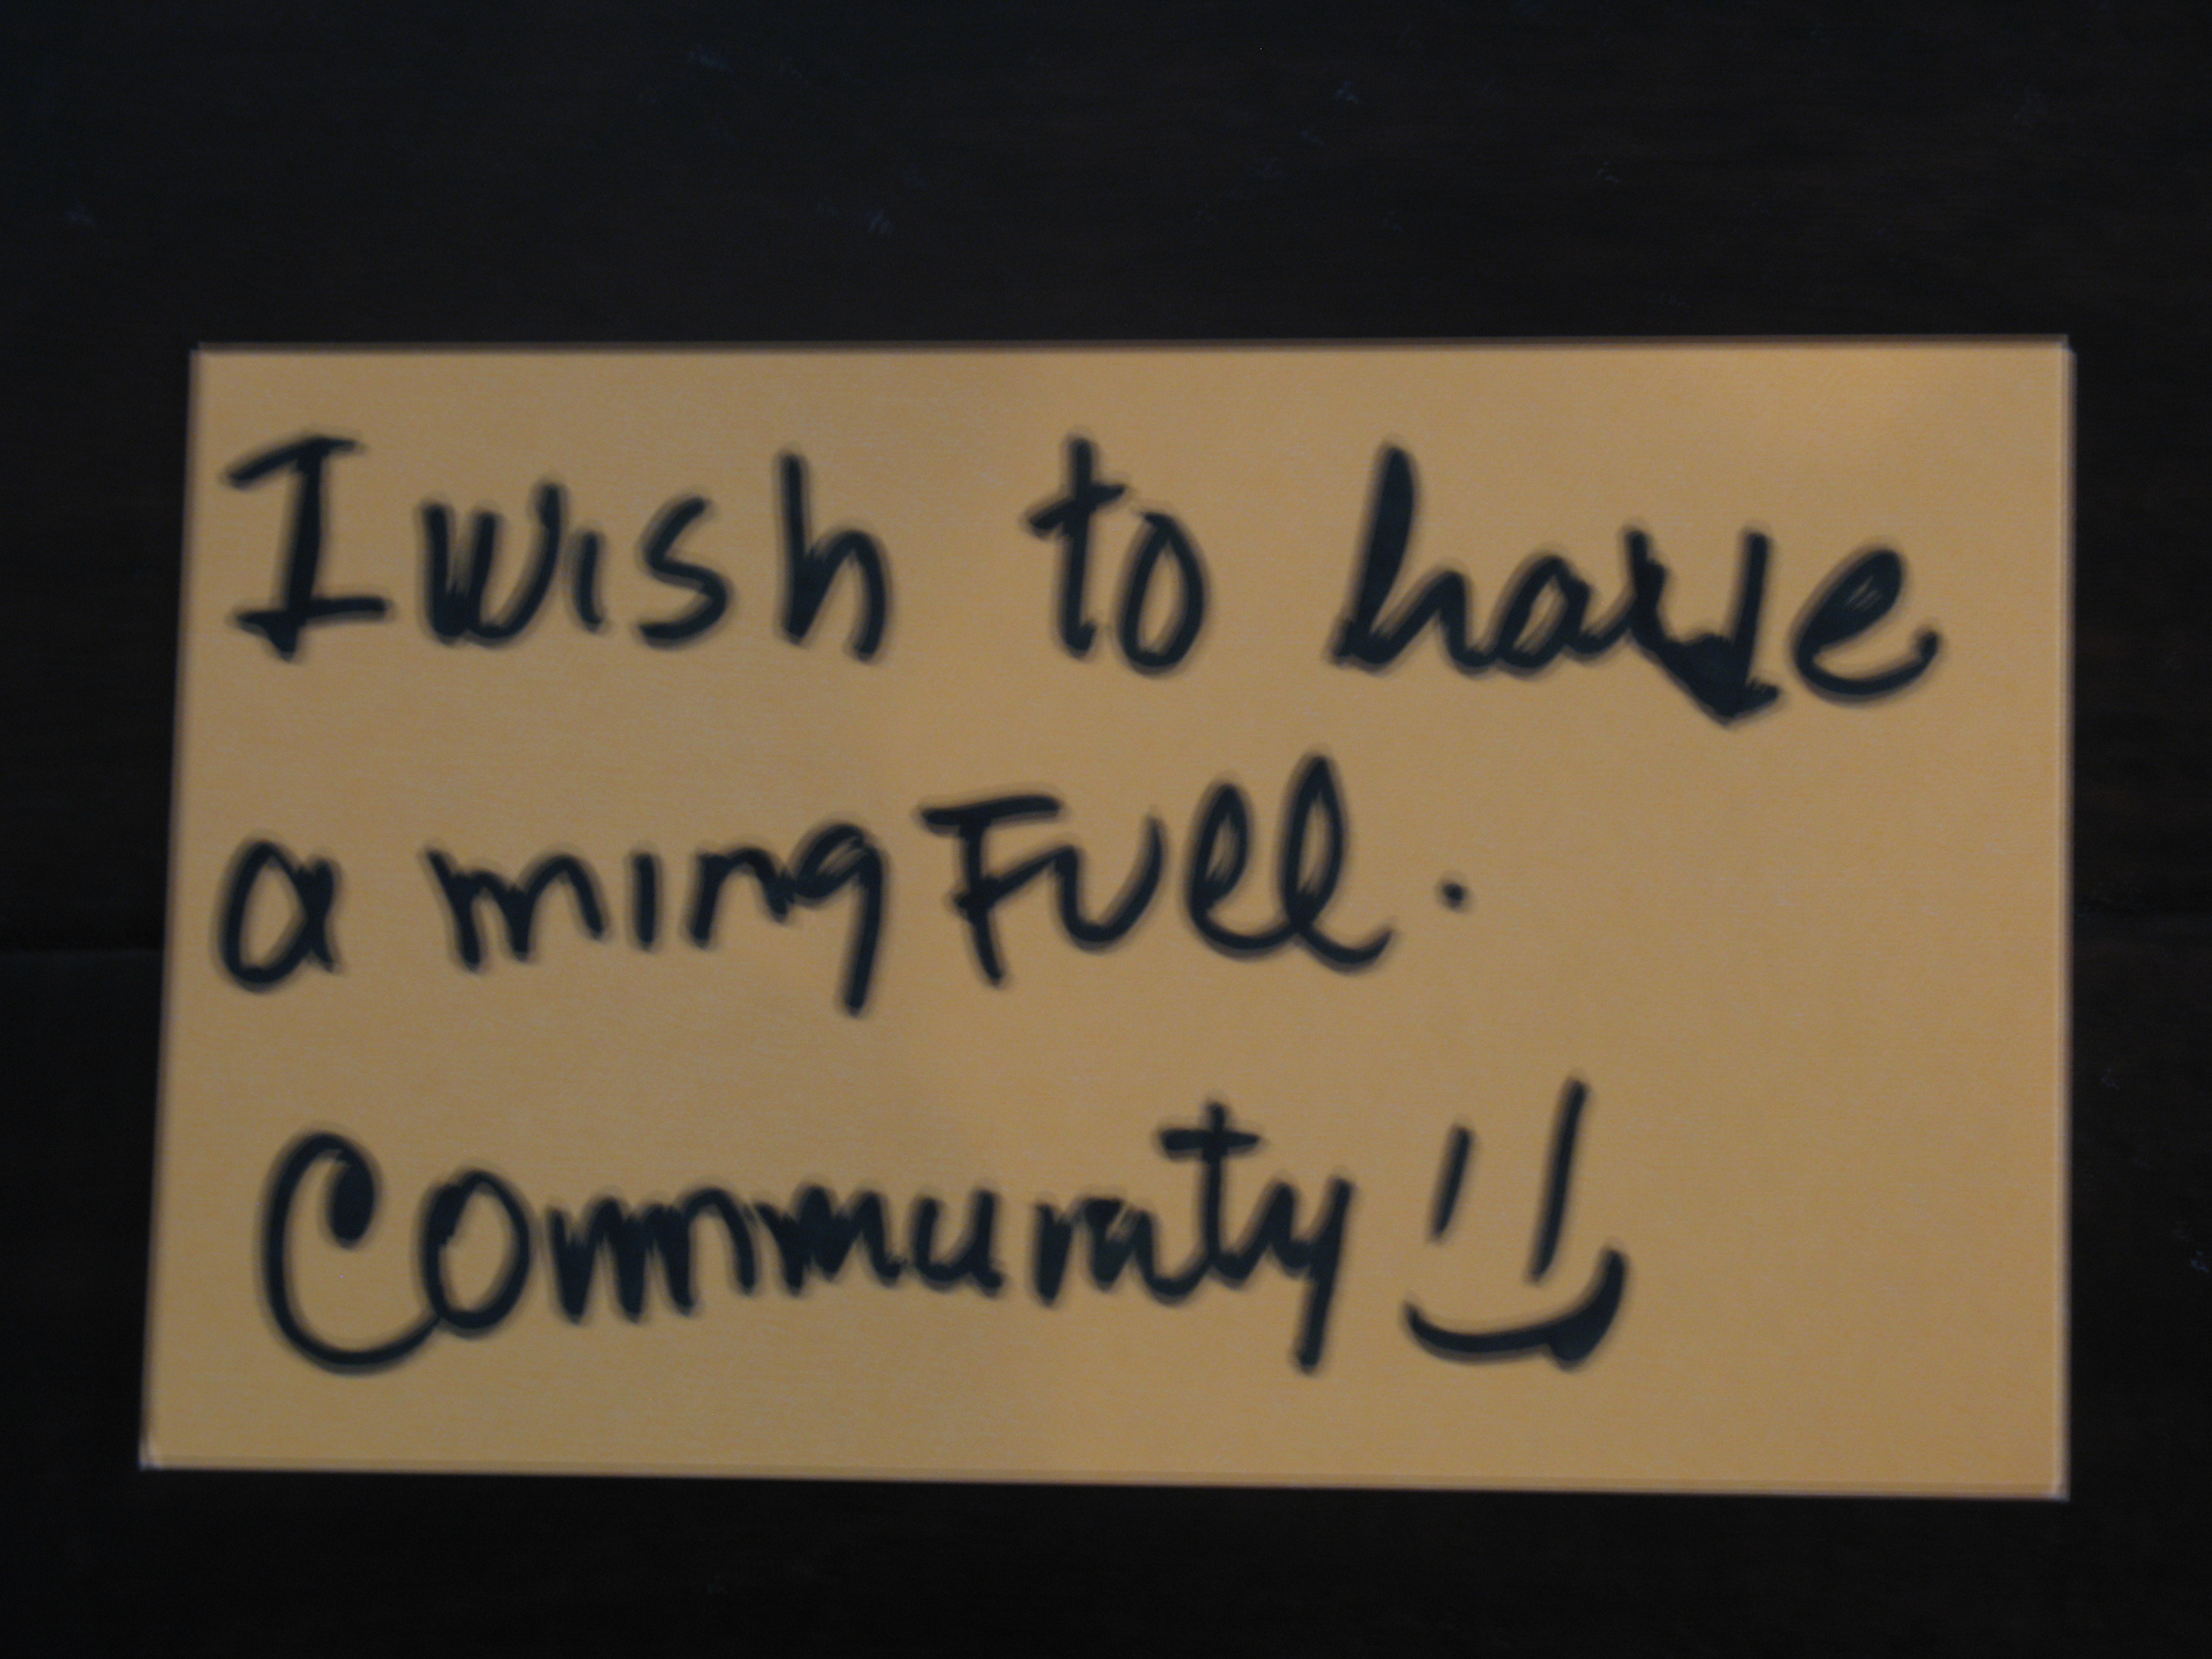 I wish to have
a mingFull.
Community